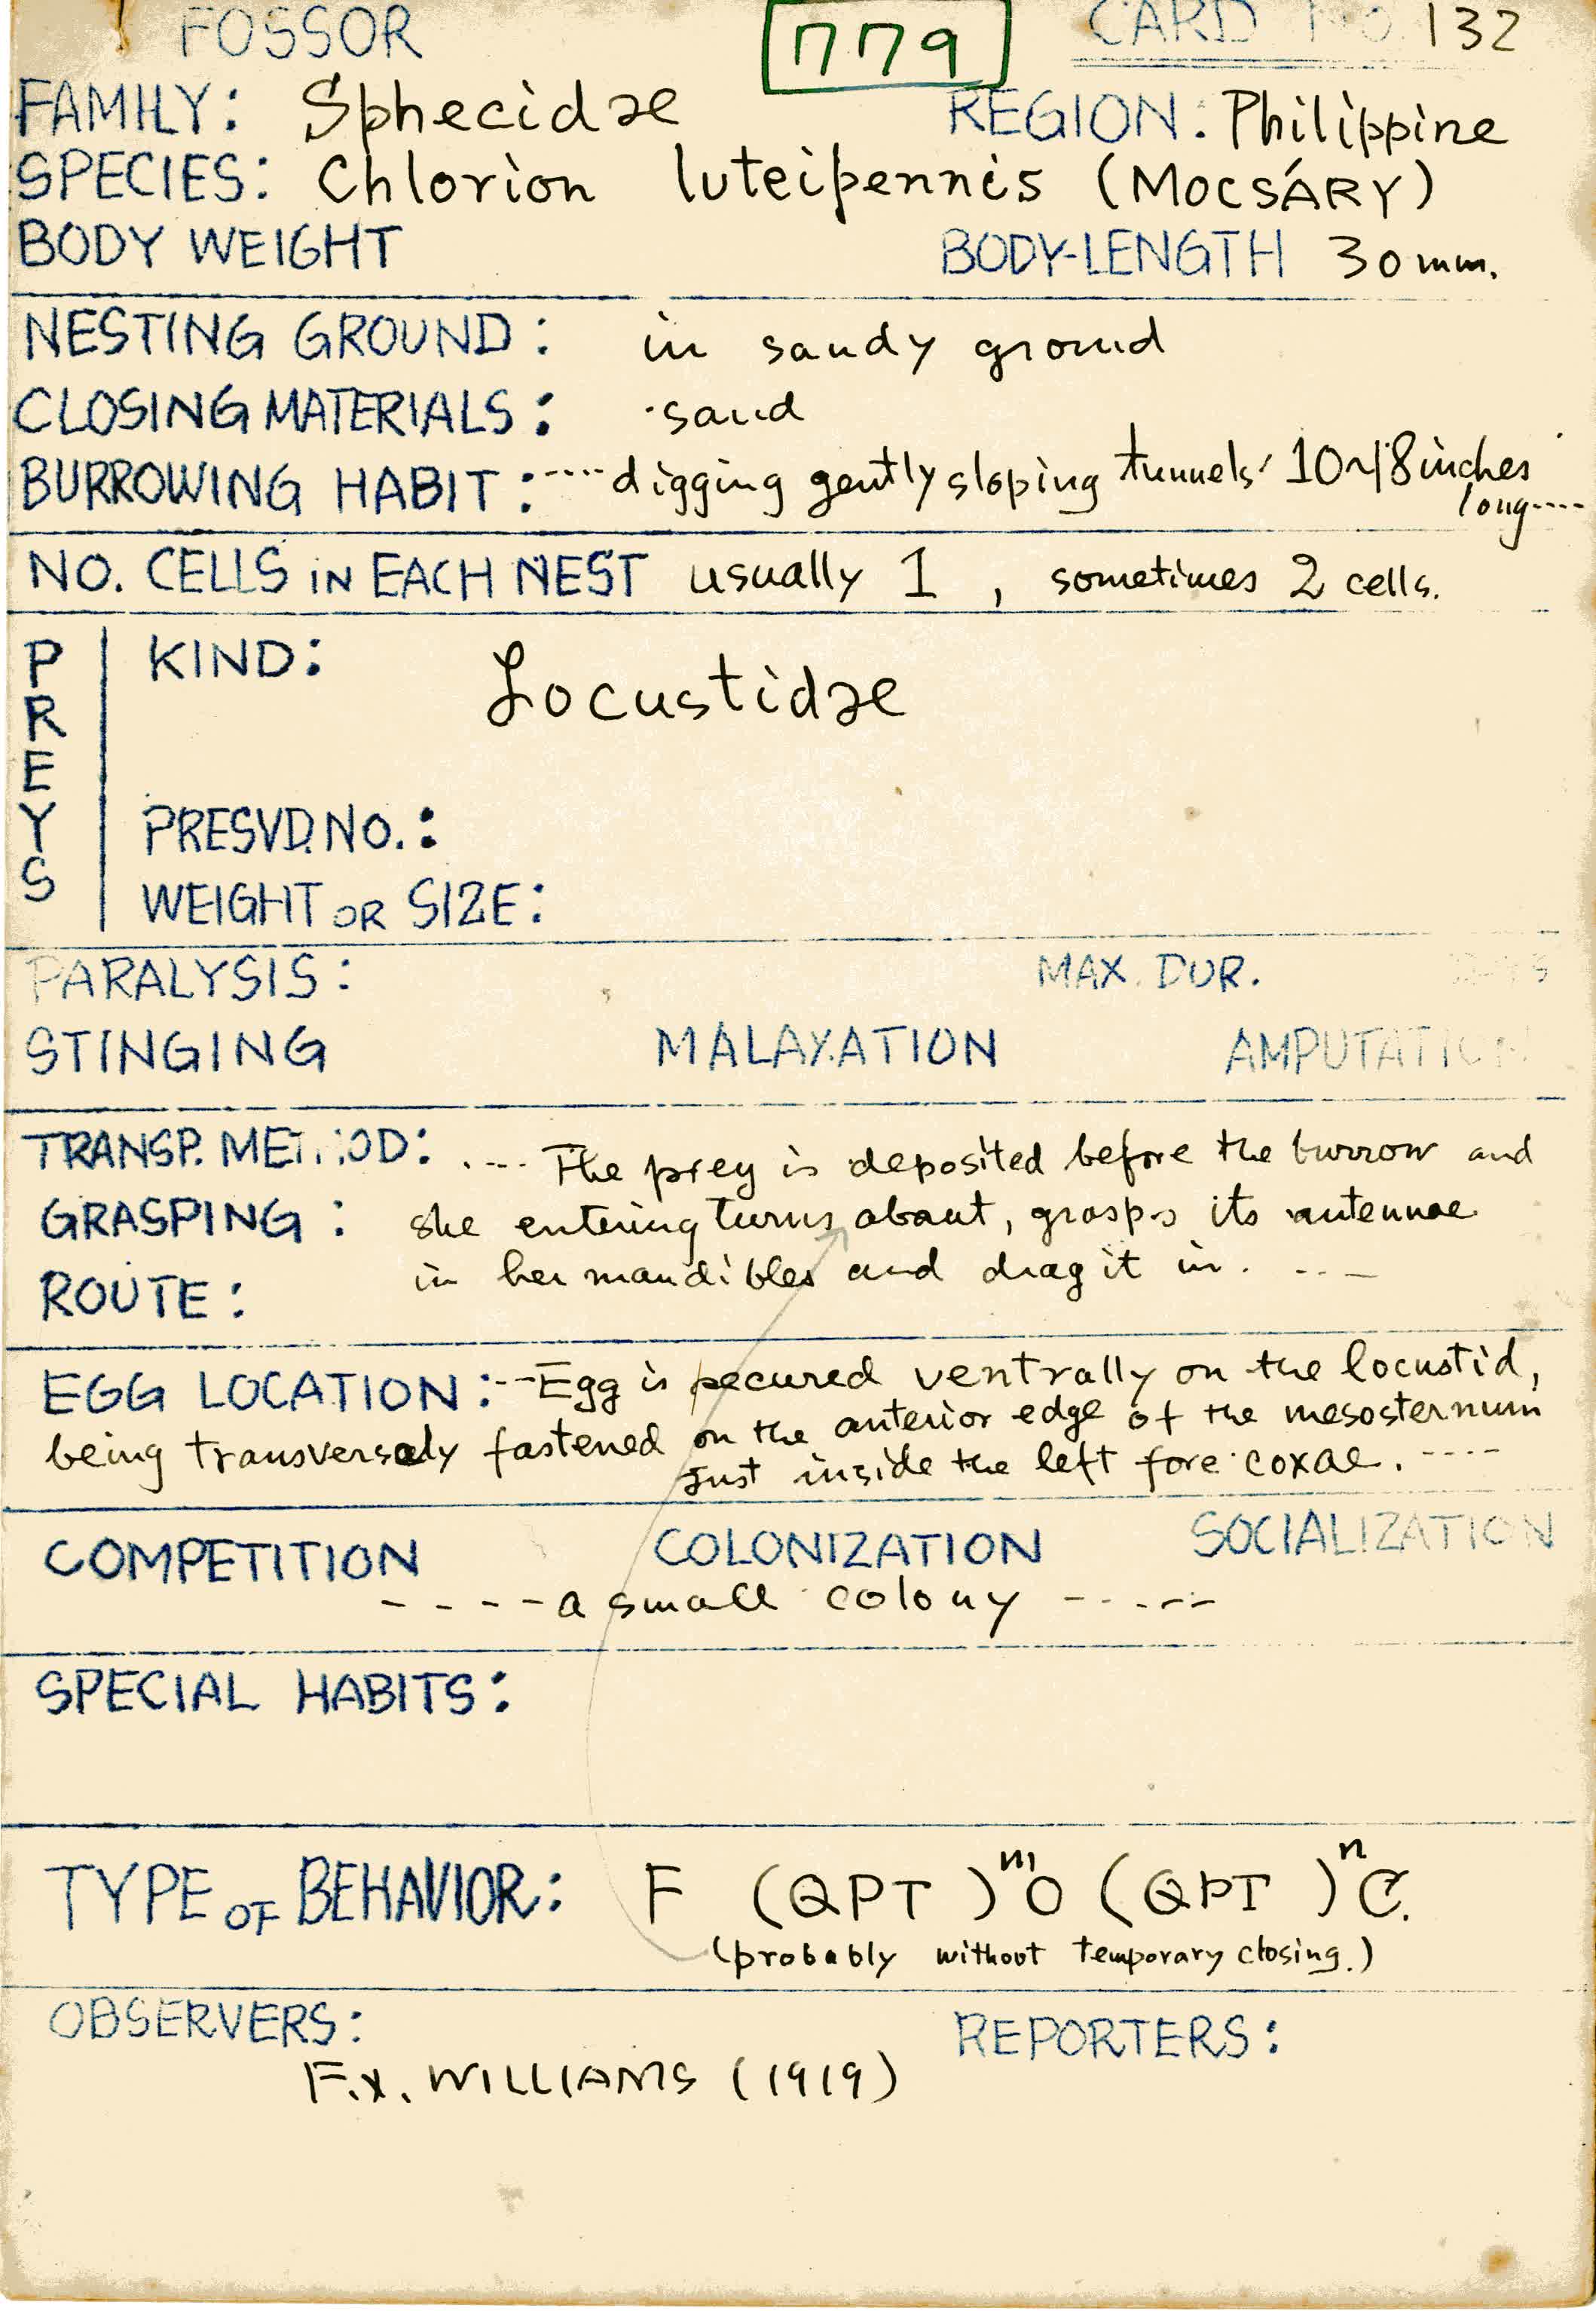 FOSSOR 779 CARD NO. 132
FAMILY: Sphecidae REGION: Philippine
SPECIES: Chlorion luteipennis (MOCSÁRY)
BODY WEIGHT BODY-LENGTH 30 mm.
NESTING GROUND: in sandy ground
CLOSING MATERIALS: sand
BURROWING HABIT: ---- digging gently sloping tunnels 10~18 inches
long----
NO. CELLS IN EACH NEST usually 1, sometimes 2 cells.
PREYS KIND: Locustidae
PRESVD. NO.:
WEIGHT OR SIZE:
PARALYSIS: MAX. DUR. DAYS
STINGING MALAXATION AMPUTATION
TRANSP. METHOD: ---- The prey is deposited before the burrow and
GRASPING: she entering turns about, grasps its antennae
ROUTE: in her mandibles and drag it in. ---
EGG LOCATION: -- Egg is pecured ventrally on the locustid,
being transversely fastened on the anterior edge of the mesosternum
just inside the left fore coxae. ----
COMPETITION COLONIZATION SOCIALIZATION
---- a small colony -----
SPECIAL HABITS:
TYPE OF BEHAVIOR: F (QPT)ᵐO (QPT)ⁿC.
(probably without temporary closing.)
OBSERVERS: REPORTERS:
F.X. WILLIAMS (1919)